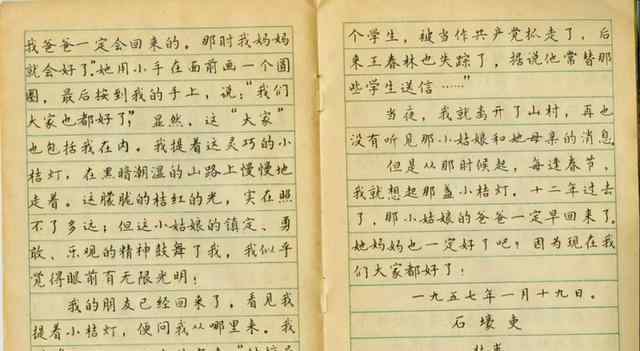 我爸爸一定会回来的。那时我妈妈
就会好了”她用小手在面前画一个圆
圈，最后按到我的手上，说：“我们
大家也都好了”，显然，这“大家”
也包括我在内。我提着这灵巧的小
桔灯，在黑暗潮湿的山路上慢慢地
走着。这朦胧的桔红的光，实在照
不了多远；但这小姑娘的镇定、勇
敢、乐观的精神鼓舞了我，我似乎
觉得眼前有无限光明！
我的朋友已经回来了，看见我
提着小桔灯，便问我从哪里来。我
个学生，被当作共产党抓走了，后
来王春林也失踪了，据说他常替那
些学生送信……”
当夜，我就离开了山村，再也
没有听见那小姑娘和她母亲的消息
但是从那时候起，每逢春节，
我就想起那盏小桔灯。十二年过去
了，那小姑娘的爸爸一定早回来了。
她妈妈也一定好了吧？因为现在我
们大家都好了！
一九五七年一月十九日。
石壕吏